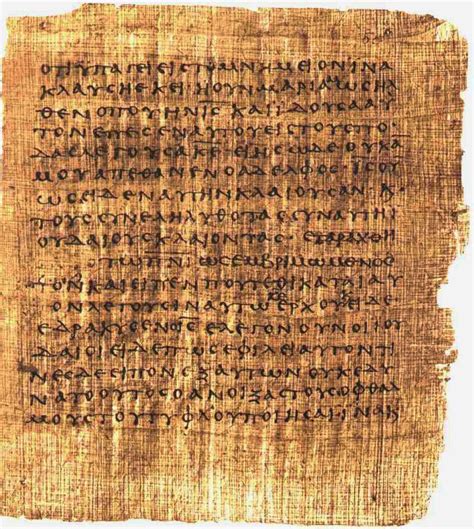 ΟΤΙΥΠΑΓΕΙΕΙϹΤΟΜΝΗΜΕΙΟΝΙΝΑ
ΚΛΑΥϹΗΕΚΕΙΗΟΥΝΜΑΡΙΑΩϹΗΛ
ΘΕΝΟΠΟΥΗΝΙϹΚΑΙΙΔΟΥϹΑΑΥ
ΤΟΝΕΠΕϹΕΝΑΥΤΟΥΕΙϹΤΟΥϹΠΟ
ΔΑϹΛΕΓΟΥϹΑΚΕΕΙΗϹΩΔΕΟΥΚΑ
ΜΟΥΑΠΕΘΑΝΕΝΟΑΔΕΛΦΟϹΙϹΟΥ
ΩϹΕΙΔΕΝΑΥΤΗΝΚΛΑΙΟΥϹΑΝΚ
ΤΟΥϹϹΥΝΕΛΗΛΥΘΟΤΑϹϹΥΝΑΥΤΗΙ
ΟΥΔΑΙΟΥϹΚΛΑΙΟΝΤΑϹ ΕΤΑΡΑΧΘΗ
ΤΩΠΝΙΩϹΕΜΒΡΙΜΩΜΕΝΟϹ
ΚΑΙΕΙΠΕΝΠΟΥΤΕΘΕΙΚΑΤΑΙΑΥ
ΟΝΛΕΓΟΥϹΙΝΑΥΤΩΕΡΧΟΥΙΔΕ
ΕΔΑΚΡΥϹΕΝΟΙϹΕΛΕΓΟΝΟΥΝΟΙΙΟΥ
ΔΑΙΟΙΕΙΔΕΠΩϹΕΦΙΛΕΙΑΥΤΟΝΤΙ
ΝΕϹΔΕΕΙΠΟΝΕΞΑΥΤΩΝΟΥΚΕΔΥ
ΝΑΤΟΟΥΤΟϹΟΑΝΟΙΞΑϹΤΟΥϹΟΦΘΑΛ
ΜΟΥϹΤΟΥΤΥΦΛΟΥΠΟΙΗϹΑΙΙΝΑΚ